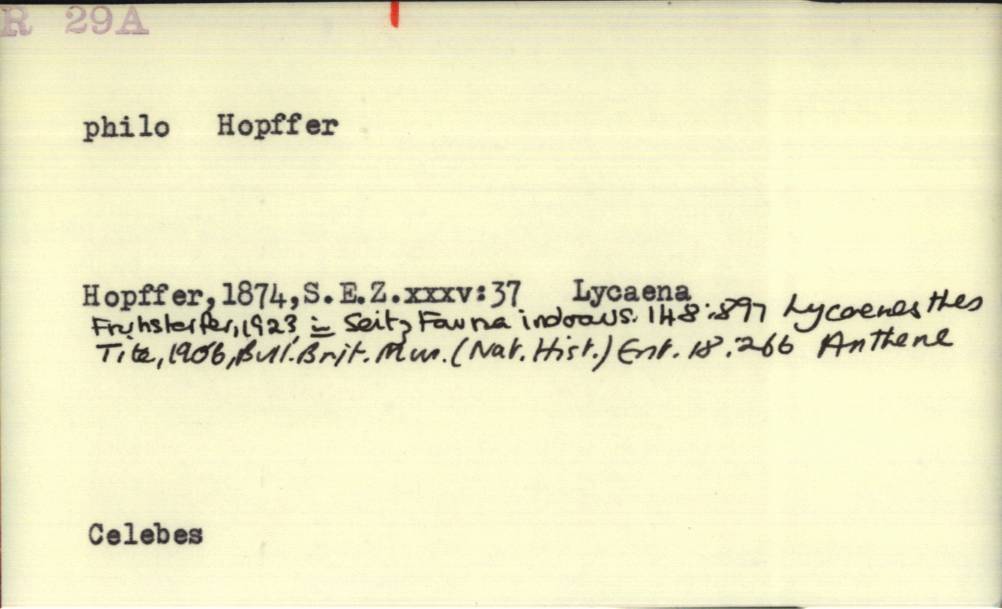 R 29A
philo Hopffer
Hopffer,1874,S.E.Z.xxxv:37 Lycaena
Fruhstorfer, 1923 in Seitz Fauna indoaus. 148:897 Lycaenesthes
Tite, 1966, Bull. Brit. Mus. (Nat. Hist.) Ent. 18.266 Anthene
Celebes